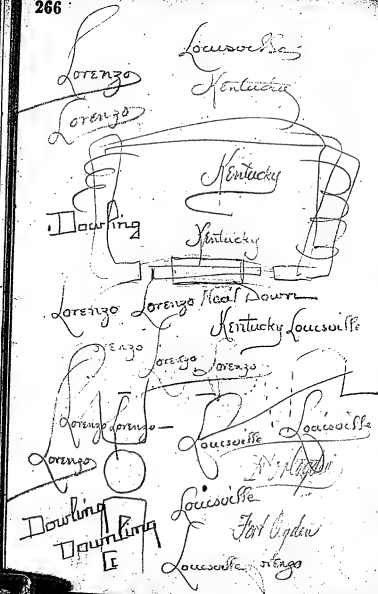 266
Lorenzo Louisville
Lorenzo Kentucky
Kentucky
Dowling
Kentucky
Lorenzo Lorenzo Neal Down
Kentucky Louisville
Lorenzo Lorenzo Lorenzo
Lorenzo Lorenzo Louisville Louisville
Lorenzo
Dowling Louisville
Downling Fort Ogden
Louisville